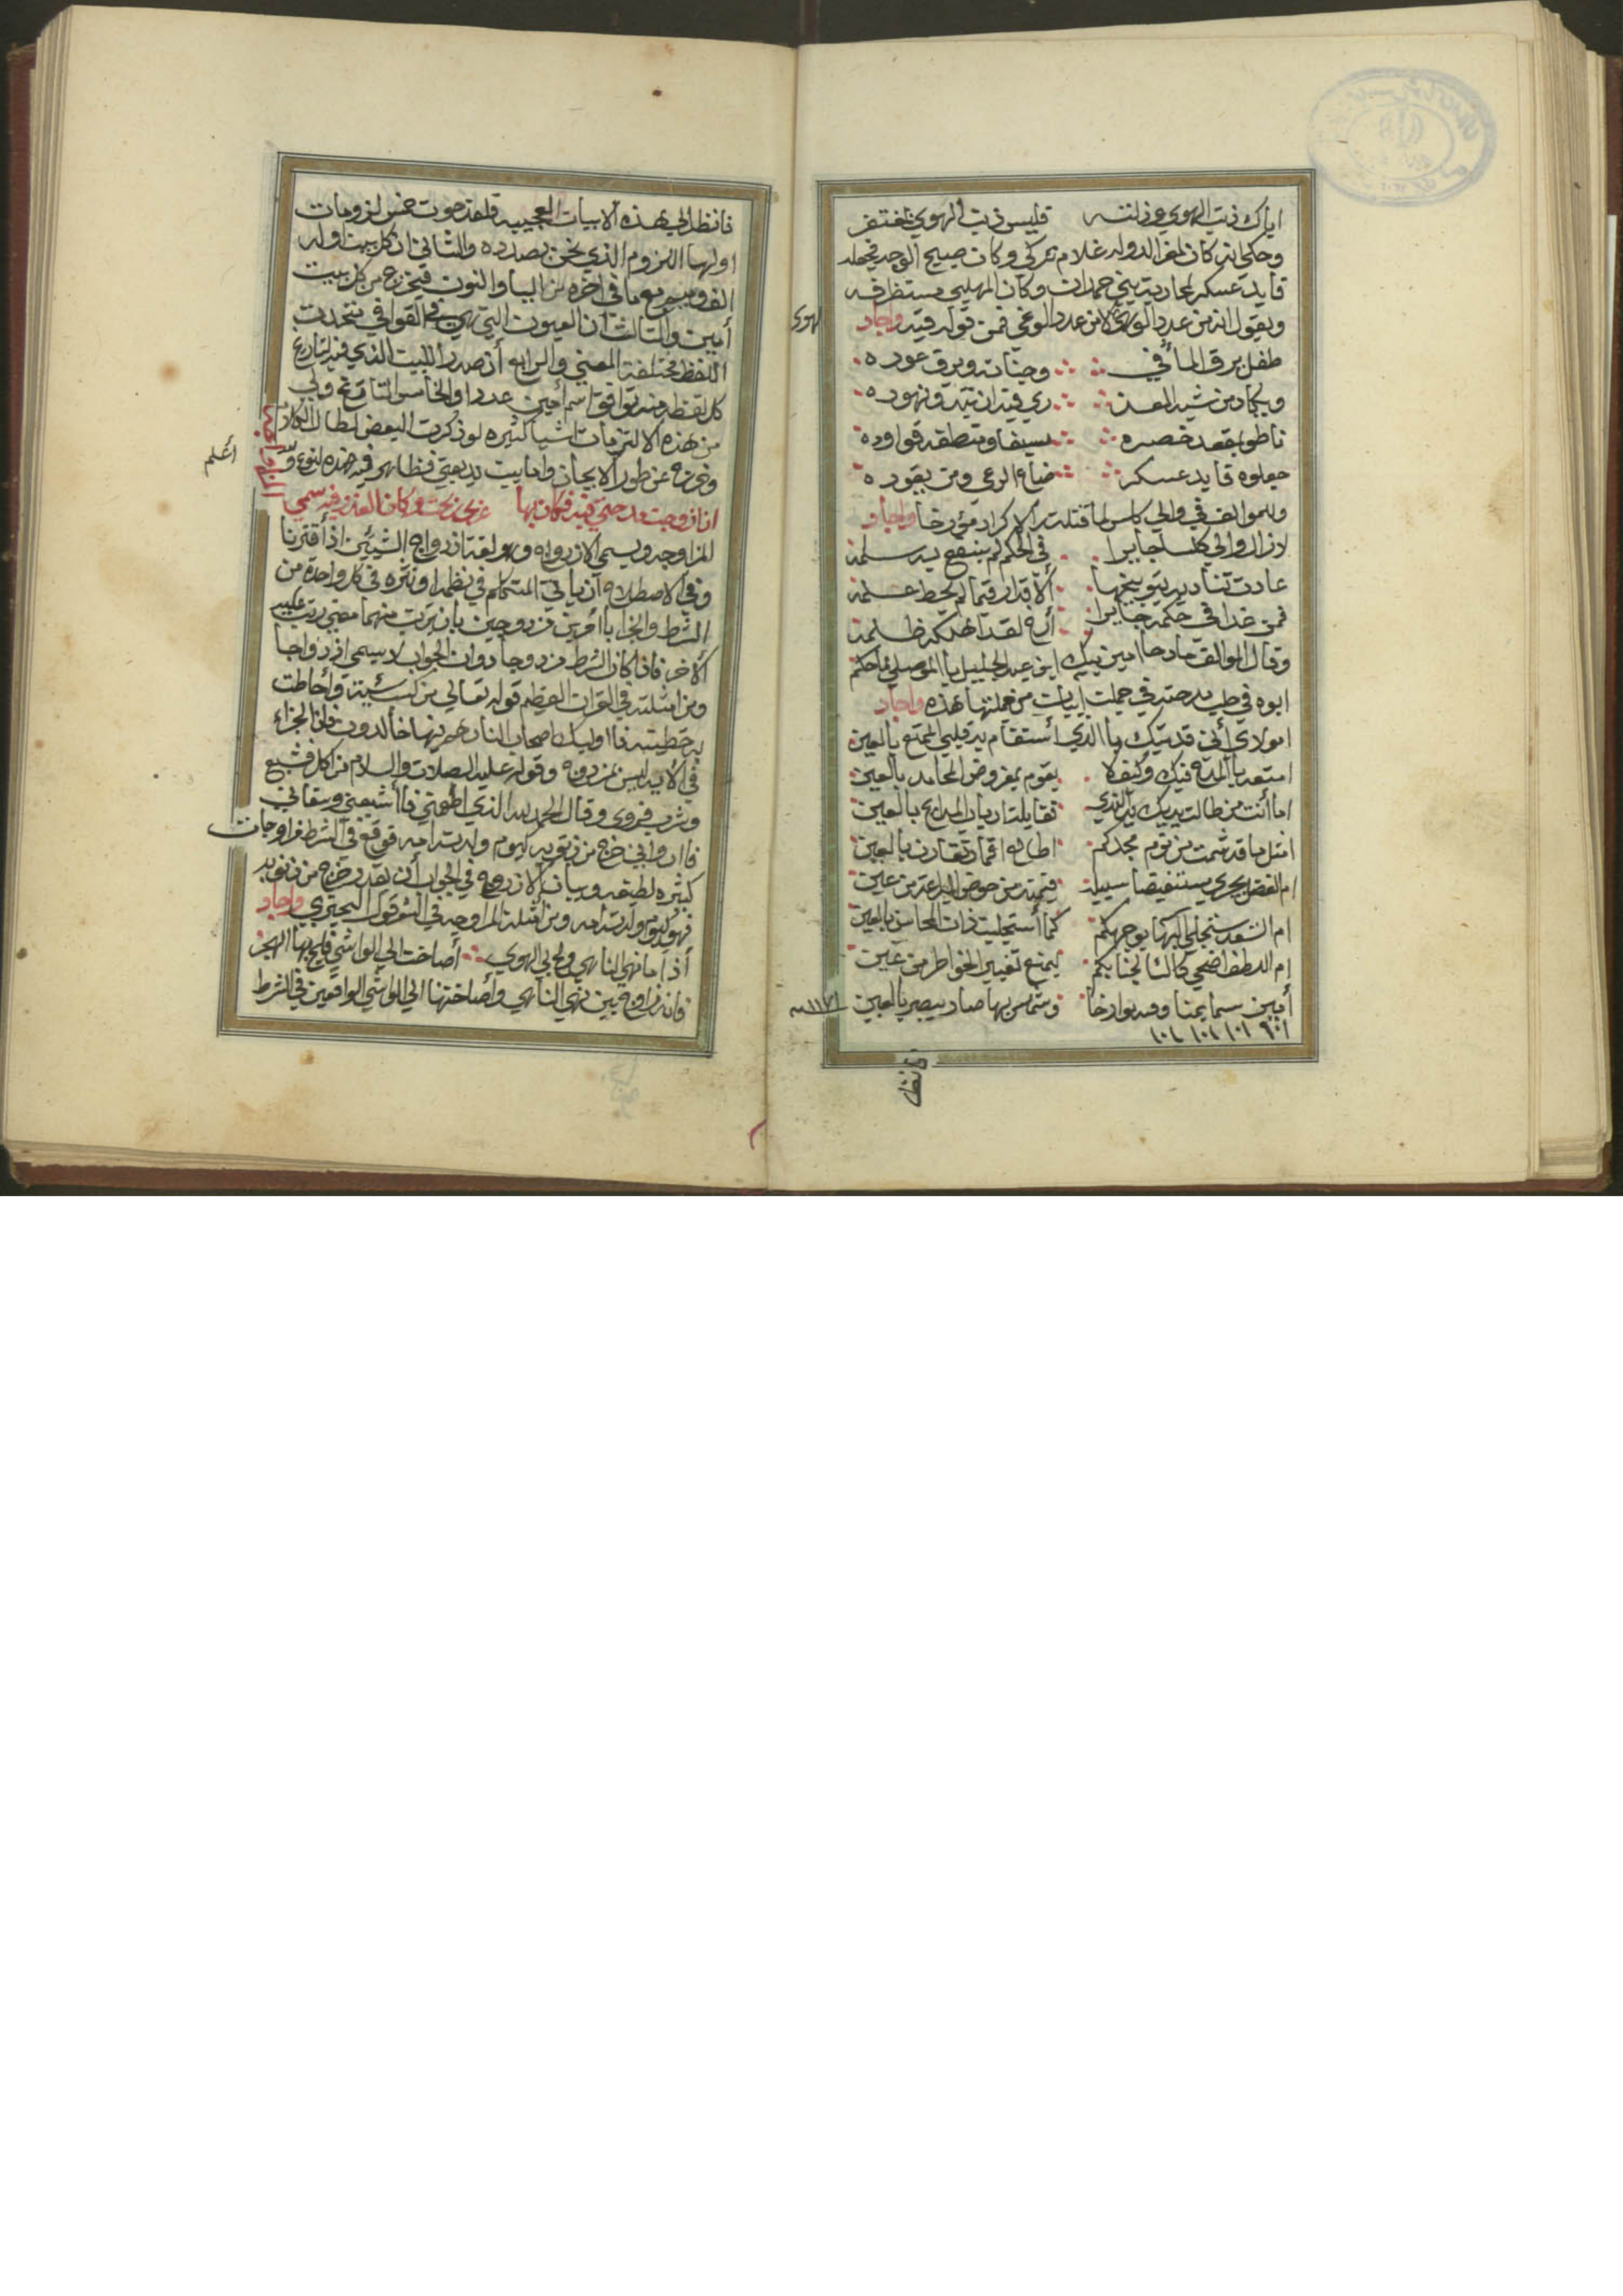 اياك ذنب الهوى وزلته قليس ذنب الهوى بمغتفر
وحكي انه كان لمعز الدوله غلام تركي وكان صبيح الوجه فجعله
قايد عسكر لمحاربة بني حمدان وكان المهلبي يستظرفه
ويقول انه من عدد الهوى لا من عدد الوغى فمن قوله فيه واجاد
الهوى
طفل يرق الما في وجناته ويرق عوده
ويكاد من شبه العذ رى فيه ان تبدو نهوده
ناطو بمقعد خصره سيفا ومنطقه تؤوده
جعلوه قايد عسكر ضاع الرعي ومن يقوده
وللموالف في والي لما قتلته الاكراد مؤرخا واجاد
لا زال والي جايرا في الحكم لم ينفع به سلمه
عادت تناديه بتوبيخها الاقدار قما لم يحط علمه
فمن غدا في حكمه جايرا ارخ لقد اهلكه ظلمه
وقال الموالف مادحا امين بيك ابن عبد الجليل يا الموصلي لما حكم
ابوه في من جملتها هذه واجاد
امولاي أني فديتك يا الذي أستقام به قلبي الممتع بالعين
امتعه بالمدح فيك وكيف لا يقوم بمفروض المحامد بالعين
اما أنت من طالت يديك يد الندي تقابلت ارباب المدايح بالعين
امثل ما قد شمت من قوم مجدكم اطاله اقمار تقارن بالعين
ام الفضل يجري مستفيضا سبيله من حوض من عين
ام السعد ستجلي البها بوجهكم كما أستجليت ذات المحاسن بالعين
ام اللطف اضحي كالسنا لجنابكم ليمنع تغيير الخواطر من عين
أبين سما يمنا وارخا وشمس بها صار يبصر بالعين
١١٧١
فانظر
فانظر الى هذه الابيات العجيبه فلقد حوت خمس لزومات
اولها اللزوم الذي نحن بصدده والثاني ان كل بيت اوله
الف ويجمع ما في اخره من اليا والنون فتخرج من كل بيت
أمين والثالث ان العيون التي هي في القوافي متحدت
اللفظ مختلفة المعني والرابع أن صدر البيت الذي فيه التاريخ
كل لفظه منه توافق اسم أمين عددا والخامس التاريخ ولي
من هذه الالتزمات اشيا كثيره لو ذكرت البعض لطال الكلام
وخرج عن طور الايجاز واما بيت بديعيتي فظاهر فيه هذه النوع
أعلم
ان ازدوجت مدحتي فيه فكان بها عزي نحت وكان الفذ فيه سمي
المزاوجه ويسمي الازدواج وهو لغة ازدواج الشيئين اذا أقترنا
وفي الاصطلاح أن ياتي المتكلم في نظمه او نثره في كل واحدة من
الشرط والجزا بامرين مزدوجين بان يرتب منهما معني رتب عليه
الاخر فاذا كان الشرط مزدوجا دون الجواب لا يسمي ازدواجا
ومن امثلته في القران العظيم قوله تعالي من كسب سيئة وأحاطت
به خطيئته فاوليك اصحاب النار هم فيها خالدون فان الجزاء
في الايه ليس مزدوج وقوله عليه الصلات والسلام من اكل فشبع
وشرب فروي وقال الحمد لله الذي أطعمني فاأشبعني وسقاني
فارواني خرج من ذنوبه كيوم ولدته امه فوقع في الشرط مزاوجات
كثيره لطيفه وبيان الازدواج في الجواب أن يقدر خرج من ذنوبه
فهو كيوم ولدته امه ومن أمثلة المزاوجه في الشعر قول البحتري واجاد
أذا ما نهي الناهي ولج بي الهوي أصاخت الى الواشي فلج بها الهجر
فانه زاوج بين نهي الناهي وأصاختها الي الواشي الواقعين في الشرط